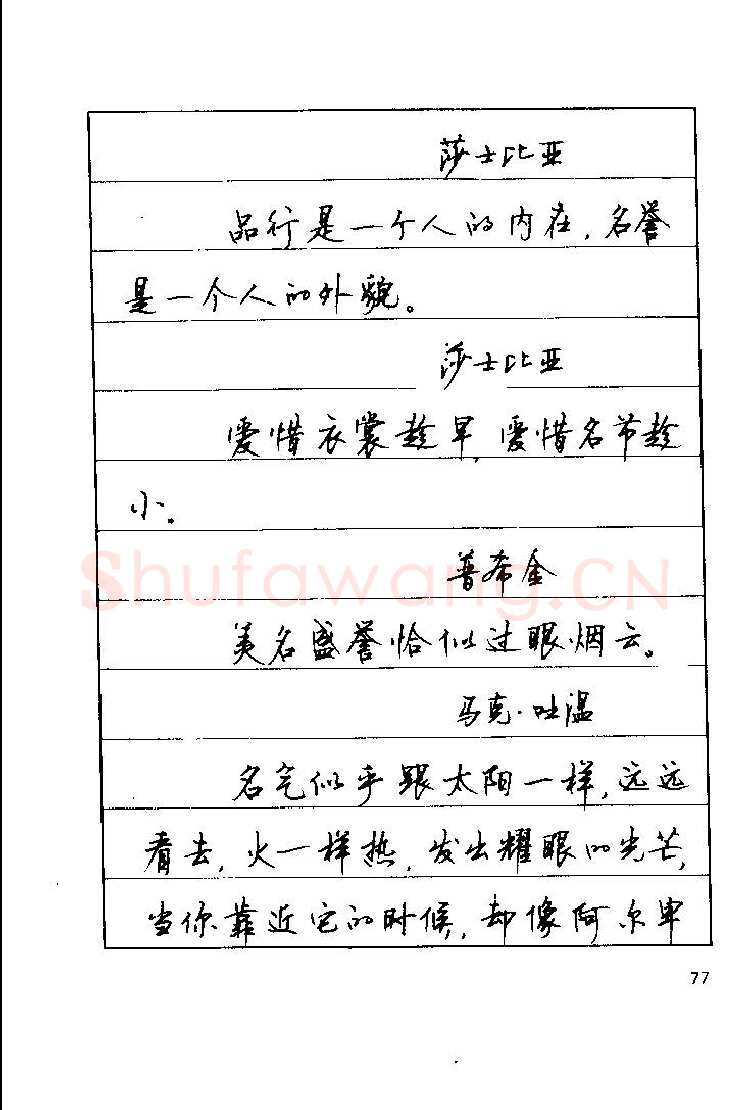 莎士比亚
品行是一个人的内在，名誉
是一个人的外貌。
莎士比亚
爱惜衣裳趁早，爱惜名节趁
小。
普希金
Shufawang.CN
美名盛誉恰似过眼烟云。
马克·吐温
名气似乎跟太阳一样，远远
看去，火一样热，发出耀眼的光芒，
当你靠近它的时候，却像阿尔卑
77